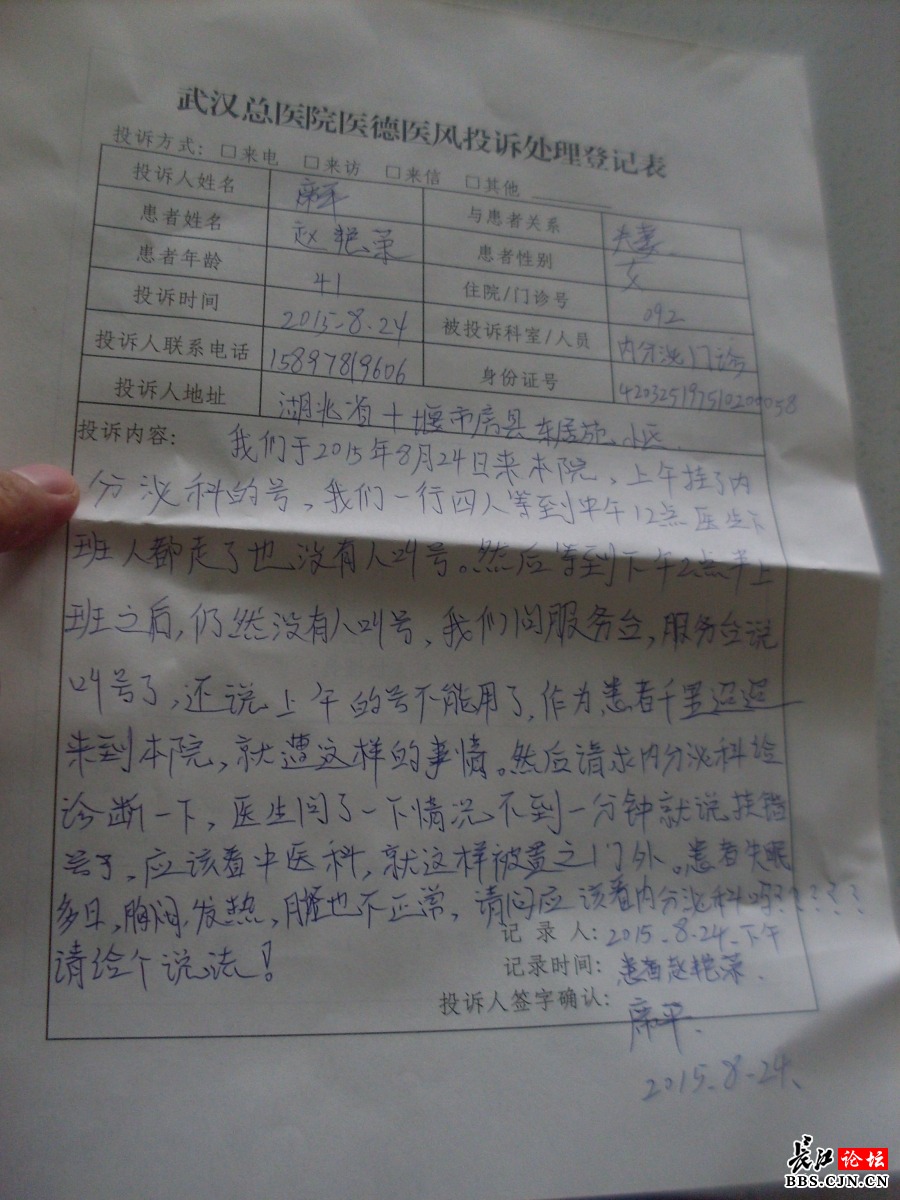 武汉总医院医德医风投诉处理登记表
投诉方式: □来电 □来访 □来信 □其他
投诉人姓名 席平 与患者关系 夫妻
患者姓名 赵艳荣 患者性别 女
患者年龄 41 住院/门诊号 092
投诉时间 2015-8.24 被投诉科室/人员 内分泌门诊
投诉人联系电话 15897819606 身份证号 420325197510200058
投诉人地址 湖北省十堰市房县 小区
投诉内容: 我们于2015年8月24日来本院,上午挂了内
分泌科的号,我们一行四人等到中午12点医生下
班人都走了也没有人叫号。然后等到下午2点半上
班之后,仍然没有人叫号,我们问服务台,服务台说
叫号了,还说上午的号不能用了,作为患者千里迢迢
来到本院,就遭这样的事情。然后请求内分泌科给
诊断一下,医生问了一下情况不到一分钟就说挂错
号了,应该看中医科,就这样被置之门外。患者失眠
多日,胸闷,发热,月经也不正常,请问应该看内分泌科吗?????
请给个说法!
记录人: 2015-8.24-下午
记录时间: 患者赵艳荣.
投诉人签字确认: 席平.
2015-8-24、
长江论坛
BBS.CJN.CN